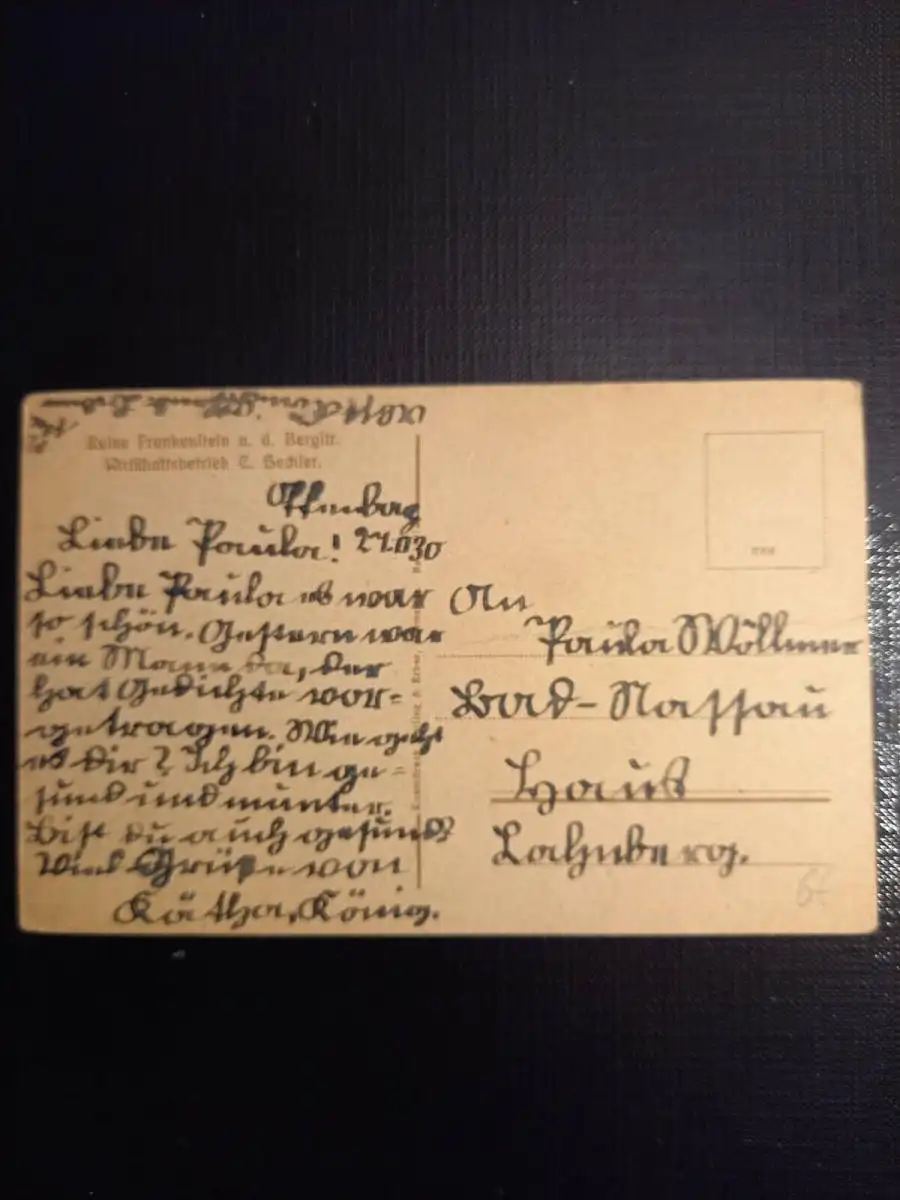 Ruine Frankenstein a. d. Bergstr.
Wirtschaftsbetrieb C. Bechler.
Offenbag
Liebe Paula! 21.830
Liebe Paula es war
so schön. Gestern war
ein Mann da, der
hat Gedichte vor-
getragen. Wie geht
es dir? Ich bin ge-
sund und munter.
Bist du auch gesund?
Viele Grüße von
Kätha, König.
An
Paula Wöllmer
Bad-Nassau
Haus
Lahnberg.